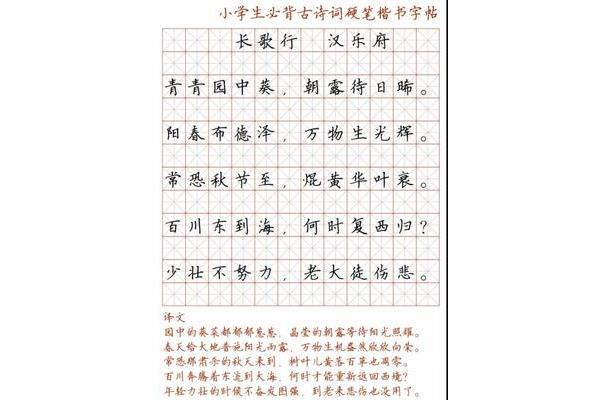 小学生必背古诗词硬笔楷书字帖
长歌行 汉乐府
青青园中葵，朝露待日晞。
阳春布德泽，万物生光辉。
常恐秋节至，焜黄华叶衰。
百川东到海，何时复西归？
少壮不努力，老大徒伤悲。
译文
园中的葵菜都郁郁葱葱，晶莹的朝露等待阳光照耀。
春天给大地普施阳光雨露，万物生机盎然欣欣向荣。
常恐那肃杀的秋天来到，树叶儿黄落百草也凋零。
百川奔腾着东流到大海，何时才能重新返回西境？
年轻力壮的时候不奋发图强，到老来悲伤也没用了。